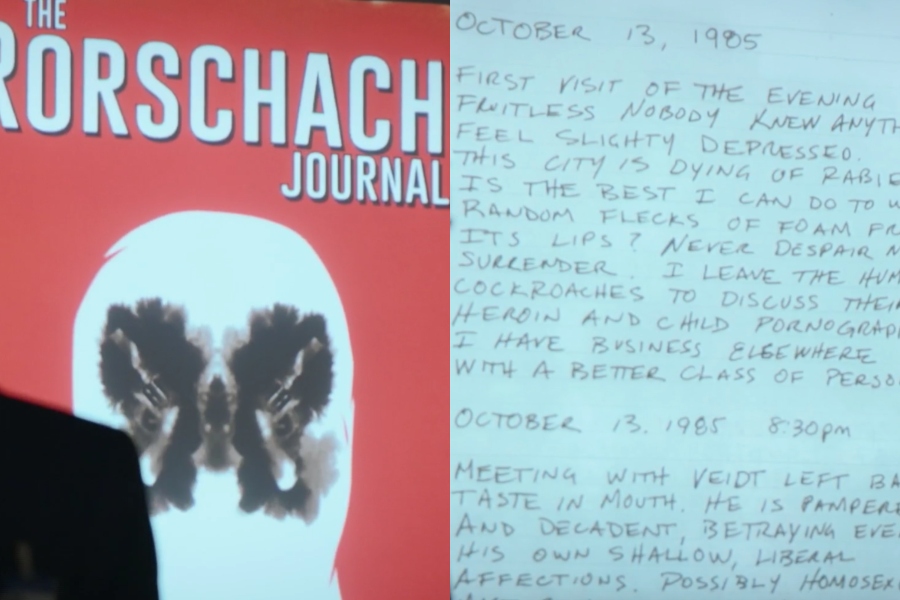 THE
RORSCHACH
JOURNAL
OCTOBER 13, 1985
FIRST VISIT OF THE EVENING
FRUITLESS NOBODY KNEW ANYTH
FEEL SLIGHTY DEPRESSED.
THIS CITY IS DYING OF RABIE
IS THE BEST I CAN DO TO W
RANDOM FLECKS OF FOAM FR
ITS LIPS? NEVER DESPAIR N
SURRENDER. I LEAVE THE HUM
COCKROACHES TO DISCUSS THEIR
HEROIN AND CHILD PORNOGRAP
I HAVE BUSINESS ELSEWHERE
WITH A BETTER CLASS OF PERSO
OCTOBER 13. 1985 8:30pm
MEETING WITH VEIDT LEFT BA
TASTE IN MOUTH. HE IS PAMPERE
AND DECADENT, BETRAYING EVE
HIS OWN SHALLOW, LIBERAL
AFFECTIONS. POSSIBLY HOMOSEX